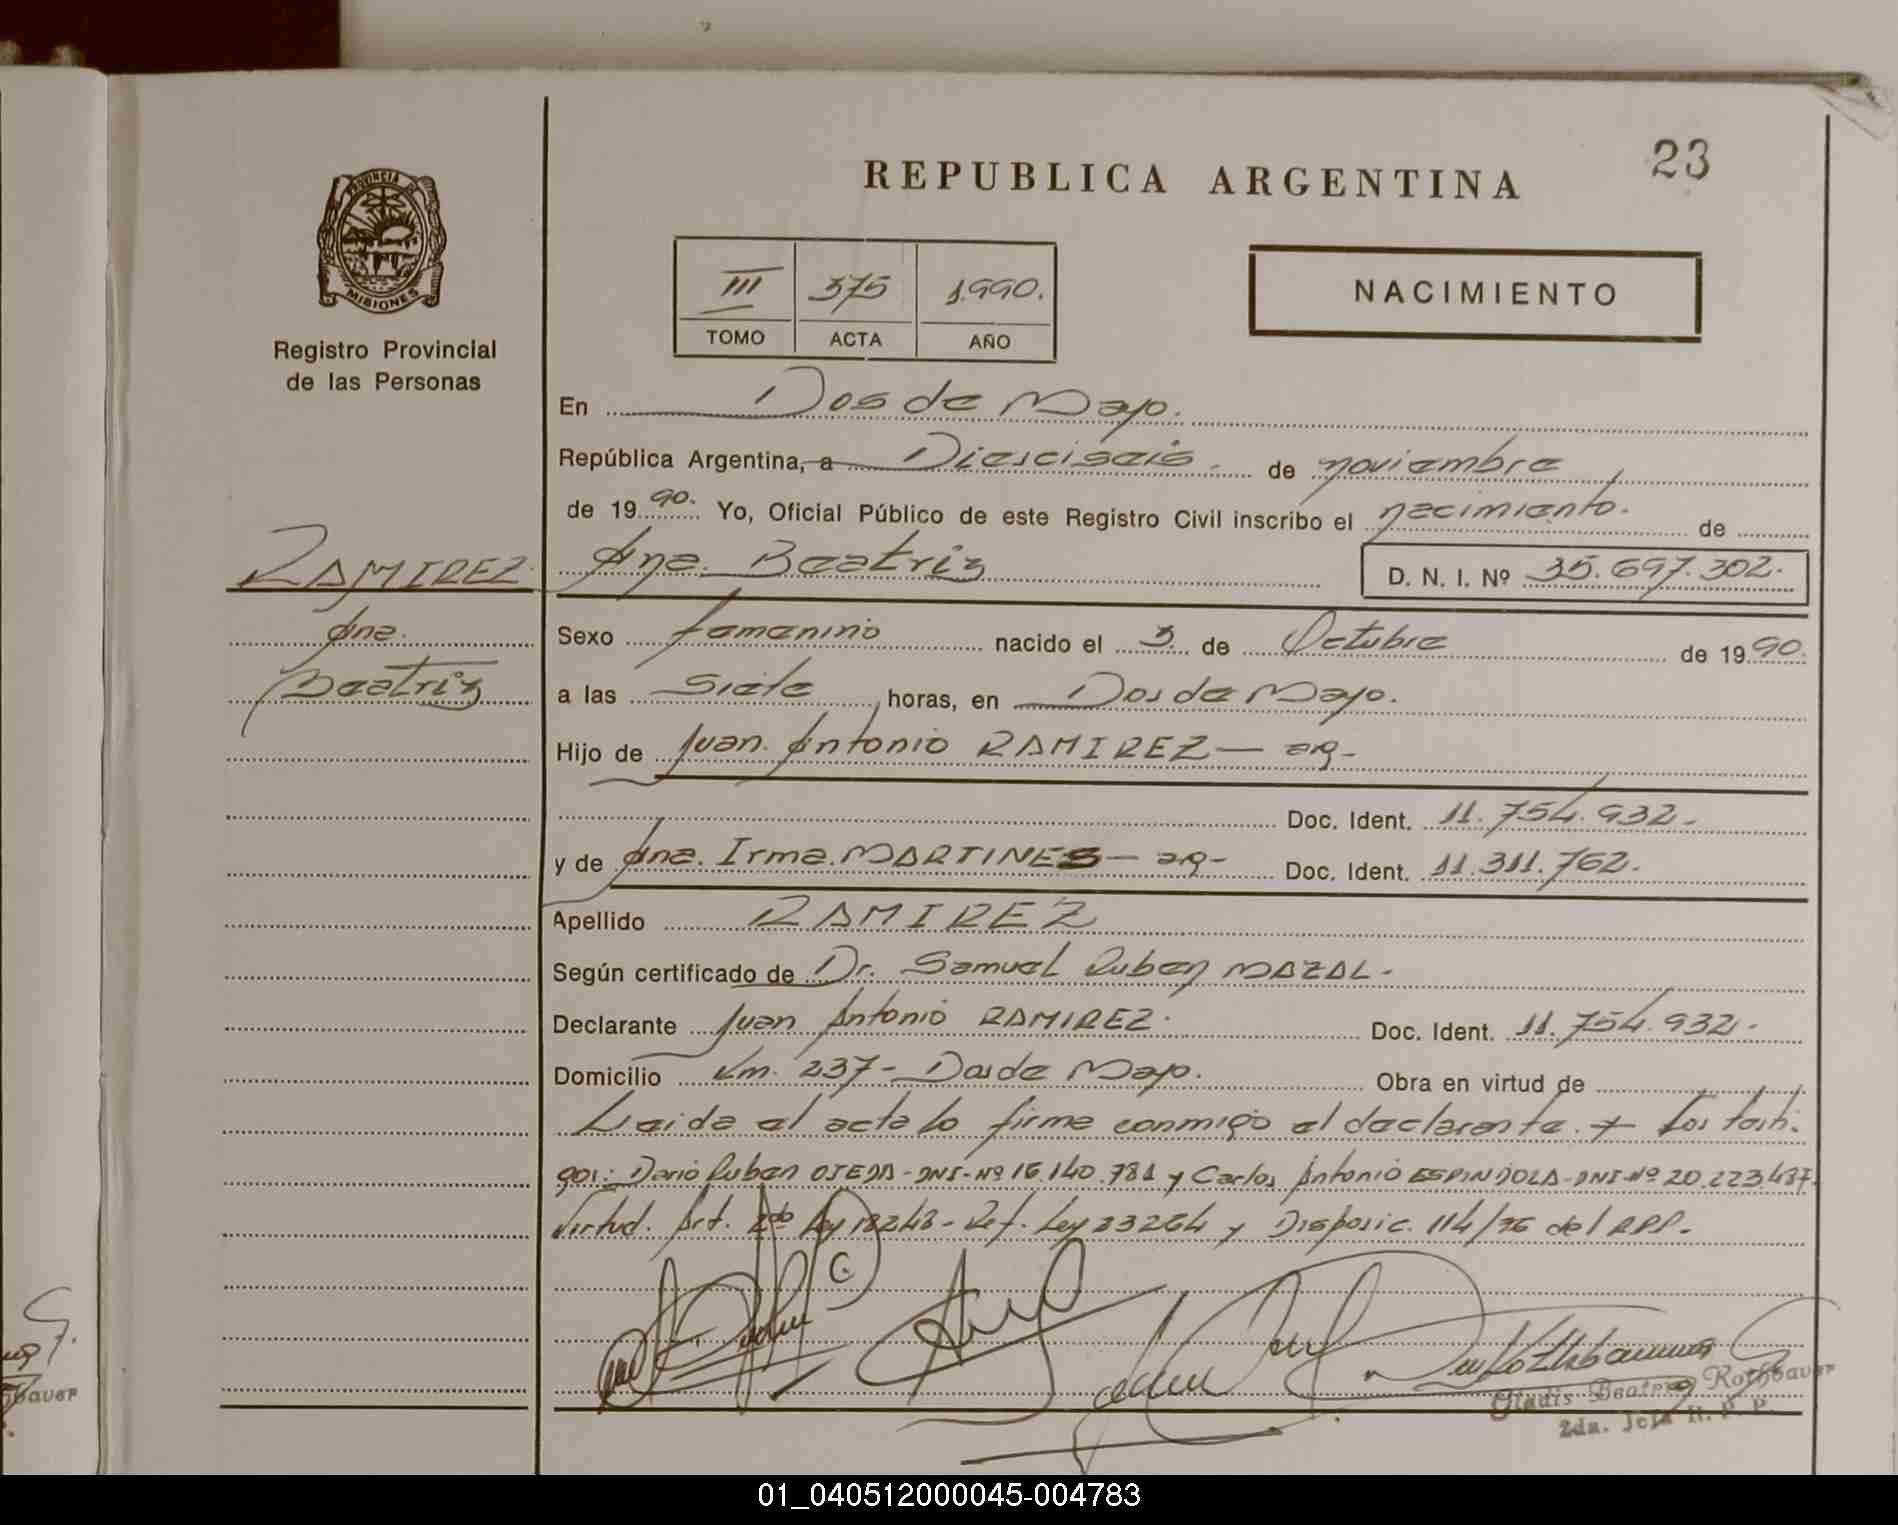 23
REPUBLICA ARGENTINA
PROVINCIA DE
MISIONES
Registro Provincial
de las Personas
III 375 1.990.
TOMO ACTA AÑO
NACIMIENTO
En Dos de Mayo.
República Argentina, a Diesciseis. de noviembre
de 19 90. Yo, Oficial Público de este Registro Civil inscribo el nacimiento. de
RAMIREZ. Ana. Beatriz D. N. I. Nº 35.697.302.
Ana. Sexo femenino nacido el 3. de Octubre de 19 90.
Beatriz a las Siete horas, en Dos de Mayo.
Hijo de Juan. Antonio RAMIREZ — arg-
Doc. Ident. 11.754.932-
y de Ana. Irma. MARTINES — arg- Doc. Ident. 11.311.762.
Apellido RAMIREZ
Según certificado de Dr. Samuel Ruben MAZAL-
Declarante Juan Antonio RAMIREZ. Doc. Ident. 11.754.932-
Domicilio Km. 237- Dos de Mayo. Obra en virtud de
Leida el acta lo firma conmigo el declarante. + Los testi.
gos: Dario Ruben OJEDA-DNI-Nº 16.140.781 y Carlos Antonio ESPINDOLA-DNI-Nº 20.223.487.
Virtud. Art. 2do Ley 18248- Ref. Ley 23264 y Disposic. 114/76 del RPP-
Gladis Beatriz Rothbauer
2da. Jefa R. P. P.
01_040512000045-004783